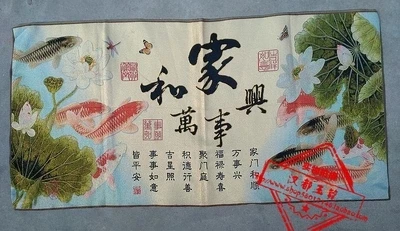 家和
萬事興
家门和顺
万事兴
福禄寿喜
聚门庭
积德行善
吉星照
事事如意
皆平安